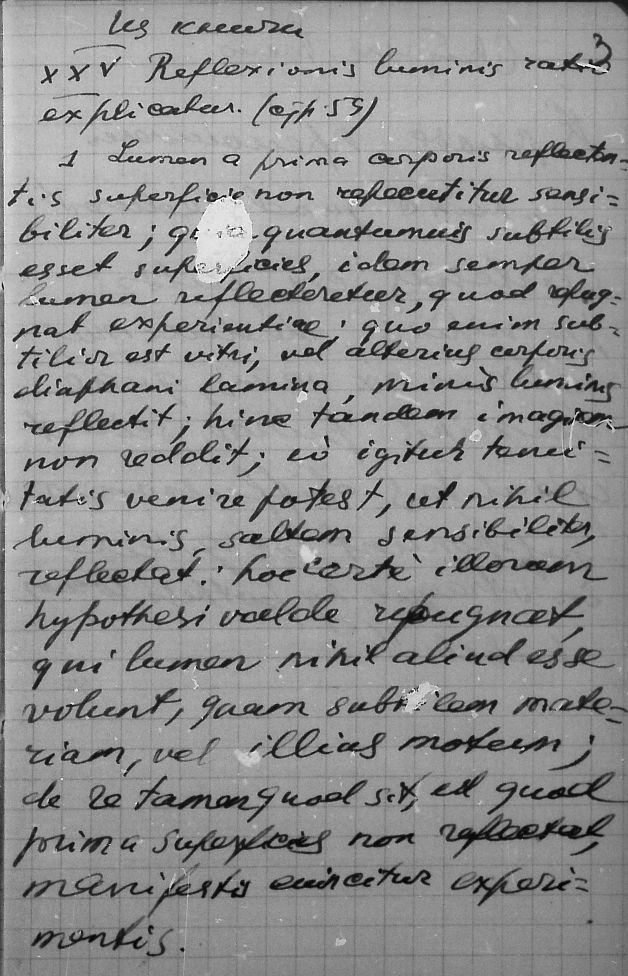 Из книги
3
XXV Reflexionis luminis ratio
explicatur. (стр 59)
1 Lumen a prima corporis reflecten-
tis superficie non repecutitur sensi=
biliter; quia quantumuis subtilis
esset superficies, idem semper
lumen reflecteretur, quod repug=
nat experientiae; quo enim sub=
tilior est vitri, vel alterius corporis
diaphani lamina, minùs luminis
reflectit; hinc tandem imaginem
non reddit; eò igitur tenui=
tatis venire potest, ut nihil
luminis, saltem sensibiliter,
reflectat: hoc certè illorum
hypothesi valde repugnat,
qui lumen nihil aliud esse
volunt, quam subtilem mate=
riam, vel illius motum;
de re tamen quod sit, et quod
prima superficies non reflectat,
manifestis euincitur experi=
mentis.